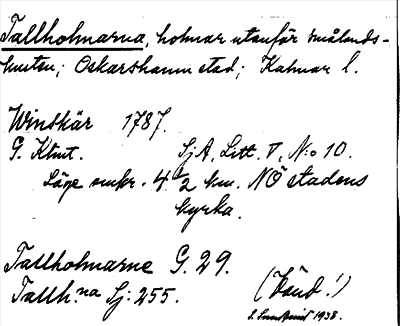 Tallholmarna, holmar utanför smålands-
kusten; Oskarshamn stad; Kalmar l.
Windskär 1787.
G. Klint. SjA, Litt. V, N:o 10.
Läge omkr. 4 1/2 km. NÖ stadens
kyrka.
Tallholmarne G. 29.
Tallh:na Sj: 255.
(Vänd!)
1938.